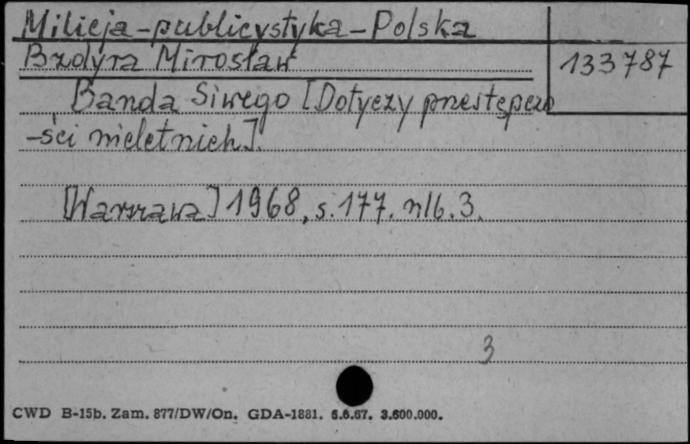 Milicja-publicystyka-Polska
Bzdyra Mirosław
133787
Banda Siwego [Dotyczy przestępczo
-ści nieletnich].
[Warszawa] 1968, s. 177. nlb. 3.
3
CWD B-15b. Zam. 877/DW/On. GDA-1881. 6.6.67. 3.600.000.